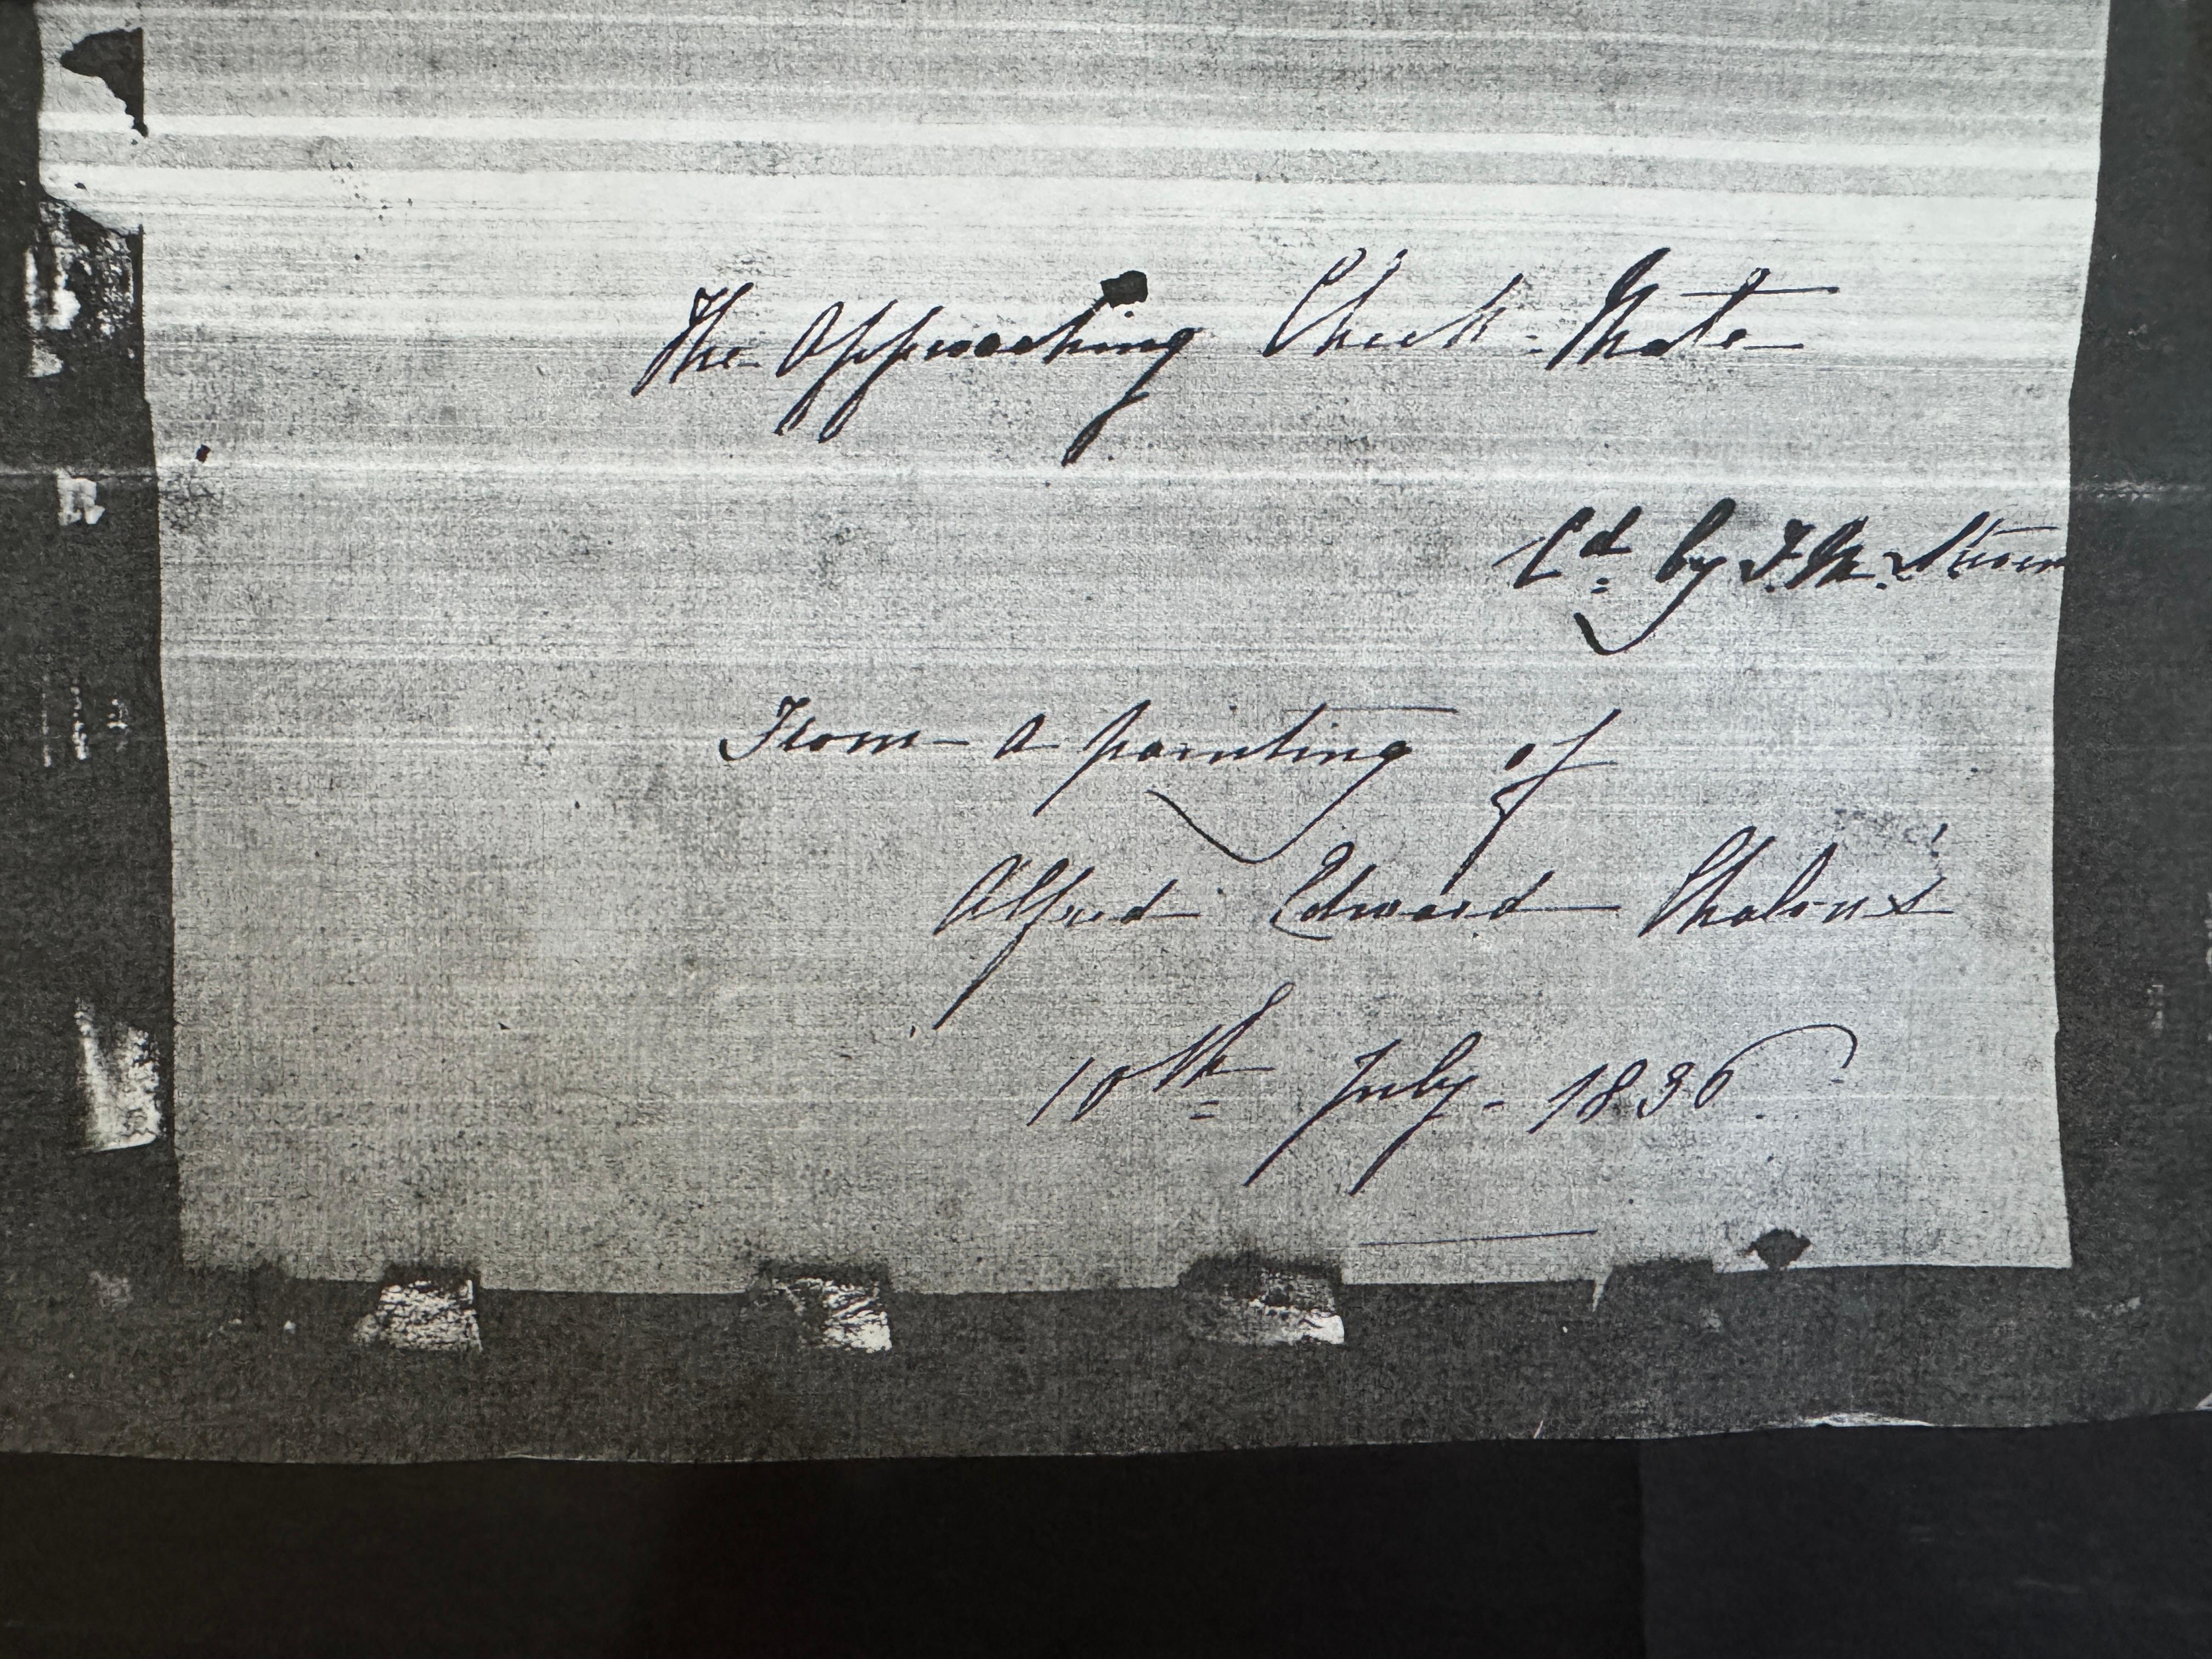 The Approaching Check-Mate
Cd. by J. M.
From a painting of
Alfred Edward Chalon's
10th July - 1836.